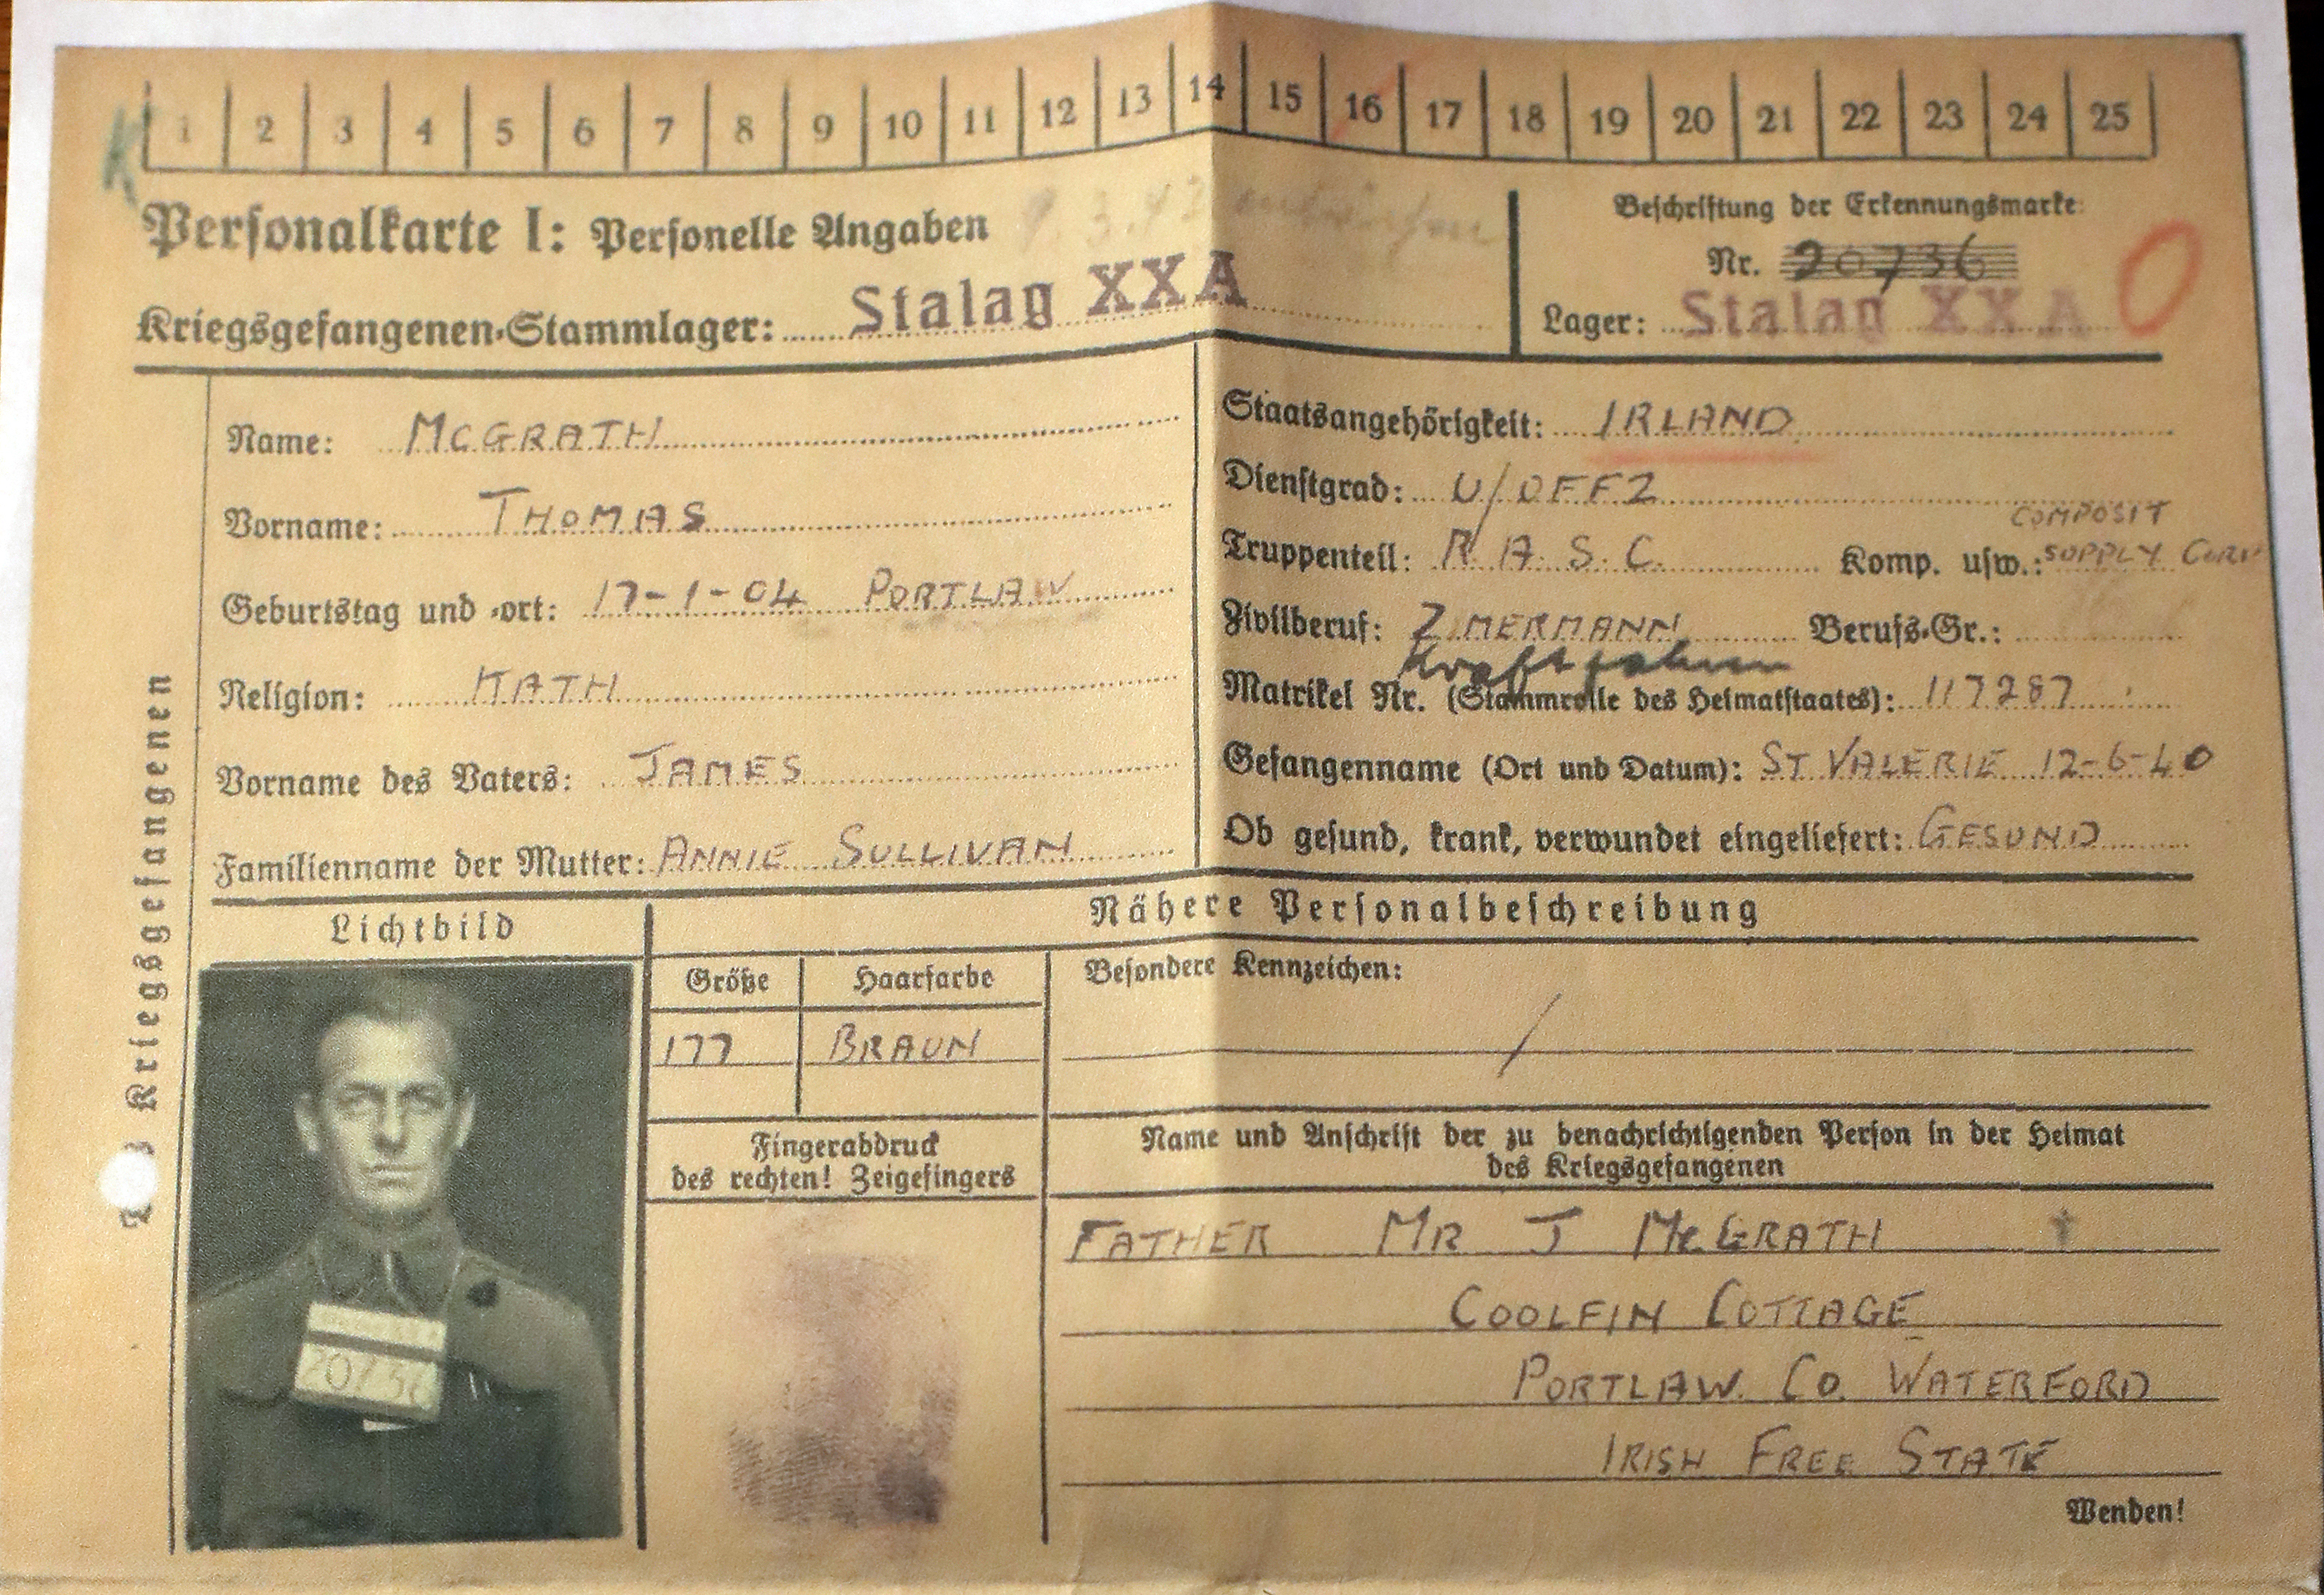 K
1 2 3 4 5 6 7 8 9 10 11 12 13 14 15 16 17 18 19 20 21 22 23 24 25
Personalkarte I: Personelle Angaben
Kriegsgefangenen-Stammlager: Stalag XXA
Beschriftung der Erkennungsmarke
Nr. 20736
Lager: Stalag XXA
O
Name: McGRATH
Vorname: THOMAS
Geburtstag und -ort: 17-1-04 PORTLAW
Religion: KATH
Vorname des Vaters: JAMES
Familienname der Mutter: ANNIE SULLIVAN
Staatsangehörigkeit: IRLAND
Dienstgrad: U/OFFZ
Truppenteil: R.A.S.C. Komp. usw.: COMPOSIT
SUPPLY
Zivilberuf: ZIMERMANN Berufs-Gr.:
Matrikel Nr. (Stammrolle des Heimatstaates): 117287
Gefangenname (Ort und Datum): ST VALERIE 12-6-40
Ob gesund, krank, verwundet eingeliefert: GESUND
Kriegsgefangenen
Lichtbild
Nähere Personalbeschreibung
Größe
Haarfarbe
Besondere Kennzeichen:
177
BRAUN
/
Fingerabdruck
des rechten! Zeigefingers
Name und Anschrift der zu benachrichtigenden Person in der Heimat
des Kriegsgefangenen
FATHER MR J McGRATH
COOLFIN COTTAGE
PORTLAW. CO. WATERFORD
IRISH FREE STATE
Wenden!